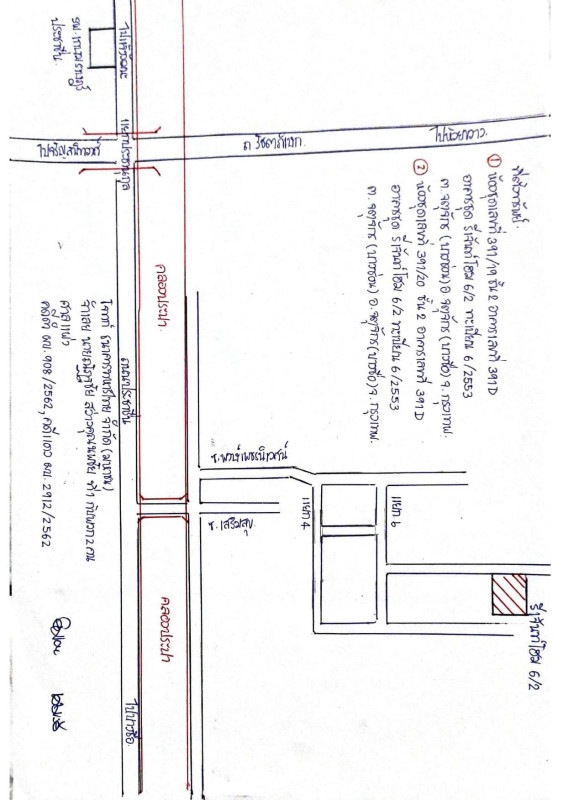 ที่ตั้งทรัพย์.
① ห้องชุดเลขที่ 391/19 ชั้น 2 อาคารเลขที่ 391 D
อาคารชุด รีเจ้นท์โฮม 6/2 ทะเบียน 6/2553
ต. จตุจักร (บางซ่อน) อ. จตุจักร (บางซื่อ) จ. กรุงเทพ.
② ห้องชุดเลขที่ 391/20 ชั้น 2 อาคารเลขที่ 391 D
อาคารชุด รีเจ้นท์โฮม 6/2 ทะเบียน 6/2553
ต. จตุจักร (บางซ่อน) อ. จตุจักร (บางซื่อ) จ. กรุงเทพ.
ไปห้วยขวาง.
ถ. รัชดาภิเษก.
ไปจรัญสนิทวงศ์
แยกประชานุกูล
ไปแจ้งวัฒนะ
รพ. เกษมราษฎร์
ประชาชื่น.
คลองประปา.
ถนนประชาชื่น
คลองประปา
ไปบางซื่อ.
ซ. พงษ์เพชรนิเวศน์
ซ. เสริมสุข.
แยก 4
แยก 6
รีเจ้นท์โฮม 6/2
โจทก์ ธนาคารกสิกรไทย จำกัด (มหาชน)
จำเลย สว่าง ที่ 1 กับพวก 2 คน
ศาลแพ่ง
คดีดำ ผบ. 908/2562, คดีแดง ผบ. 2912/2562